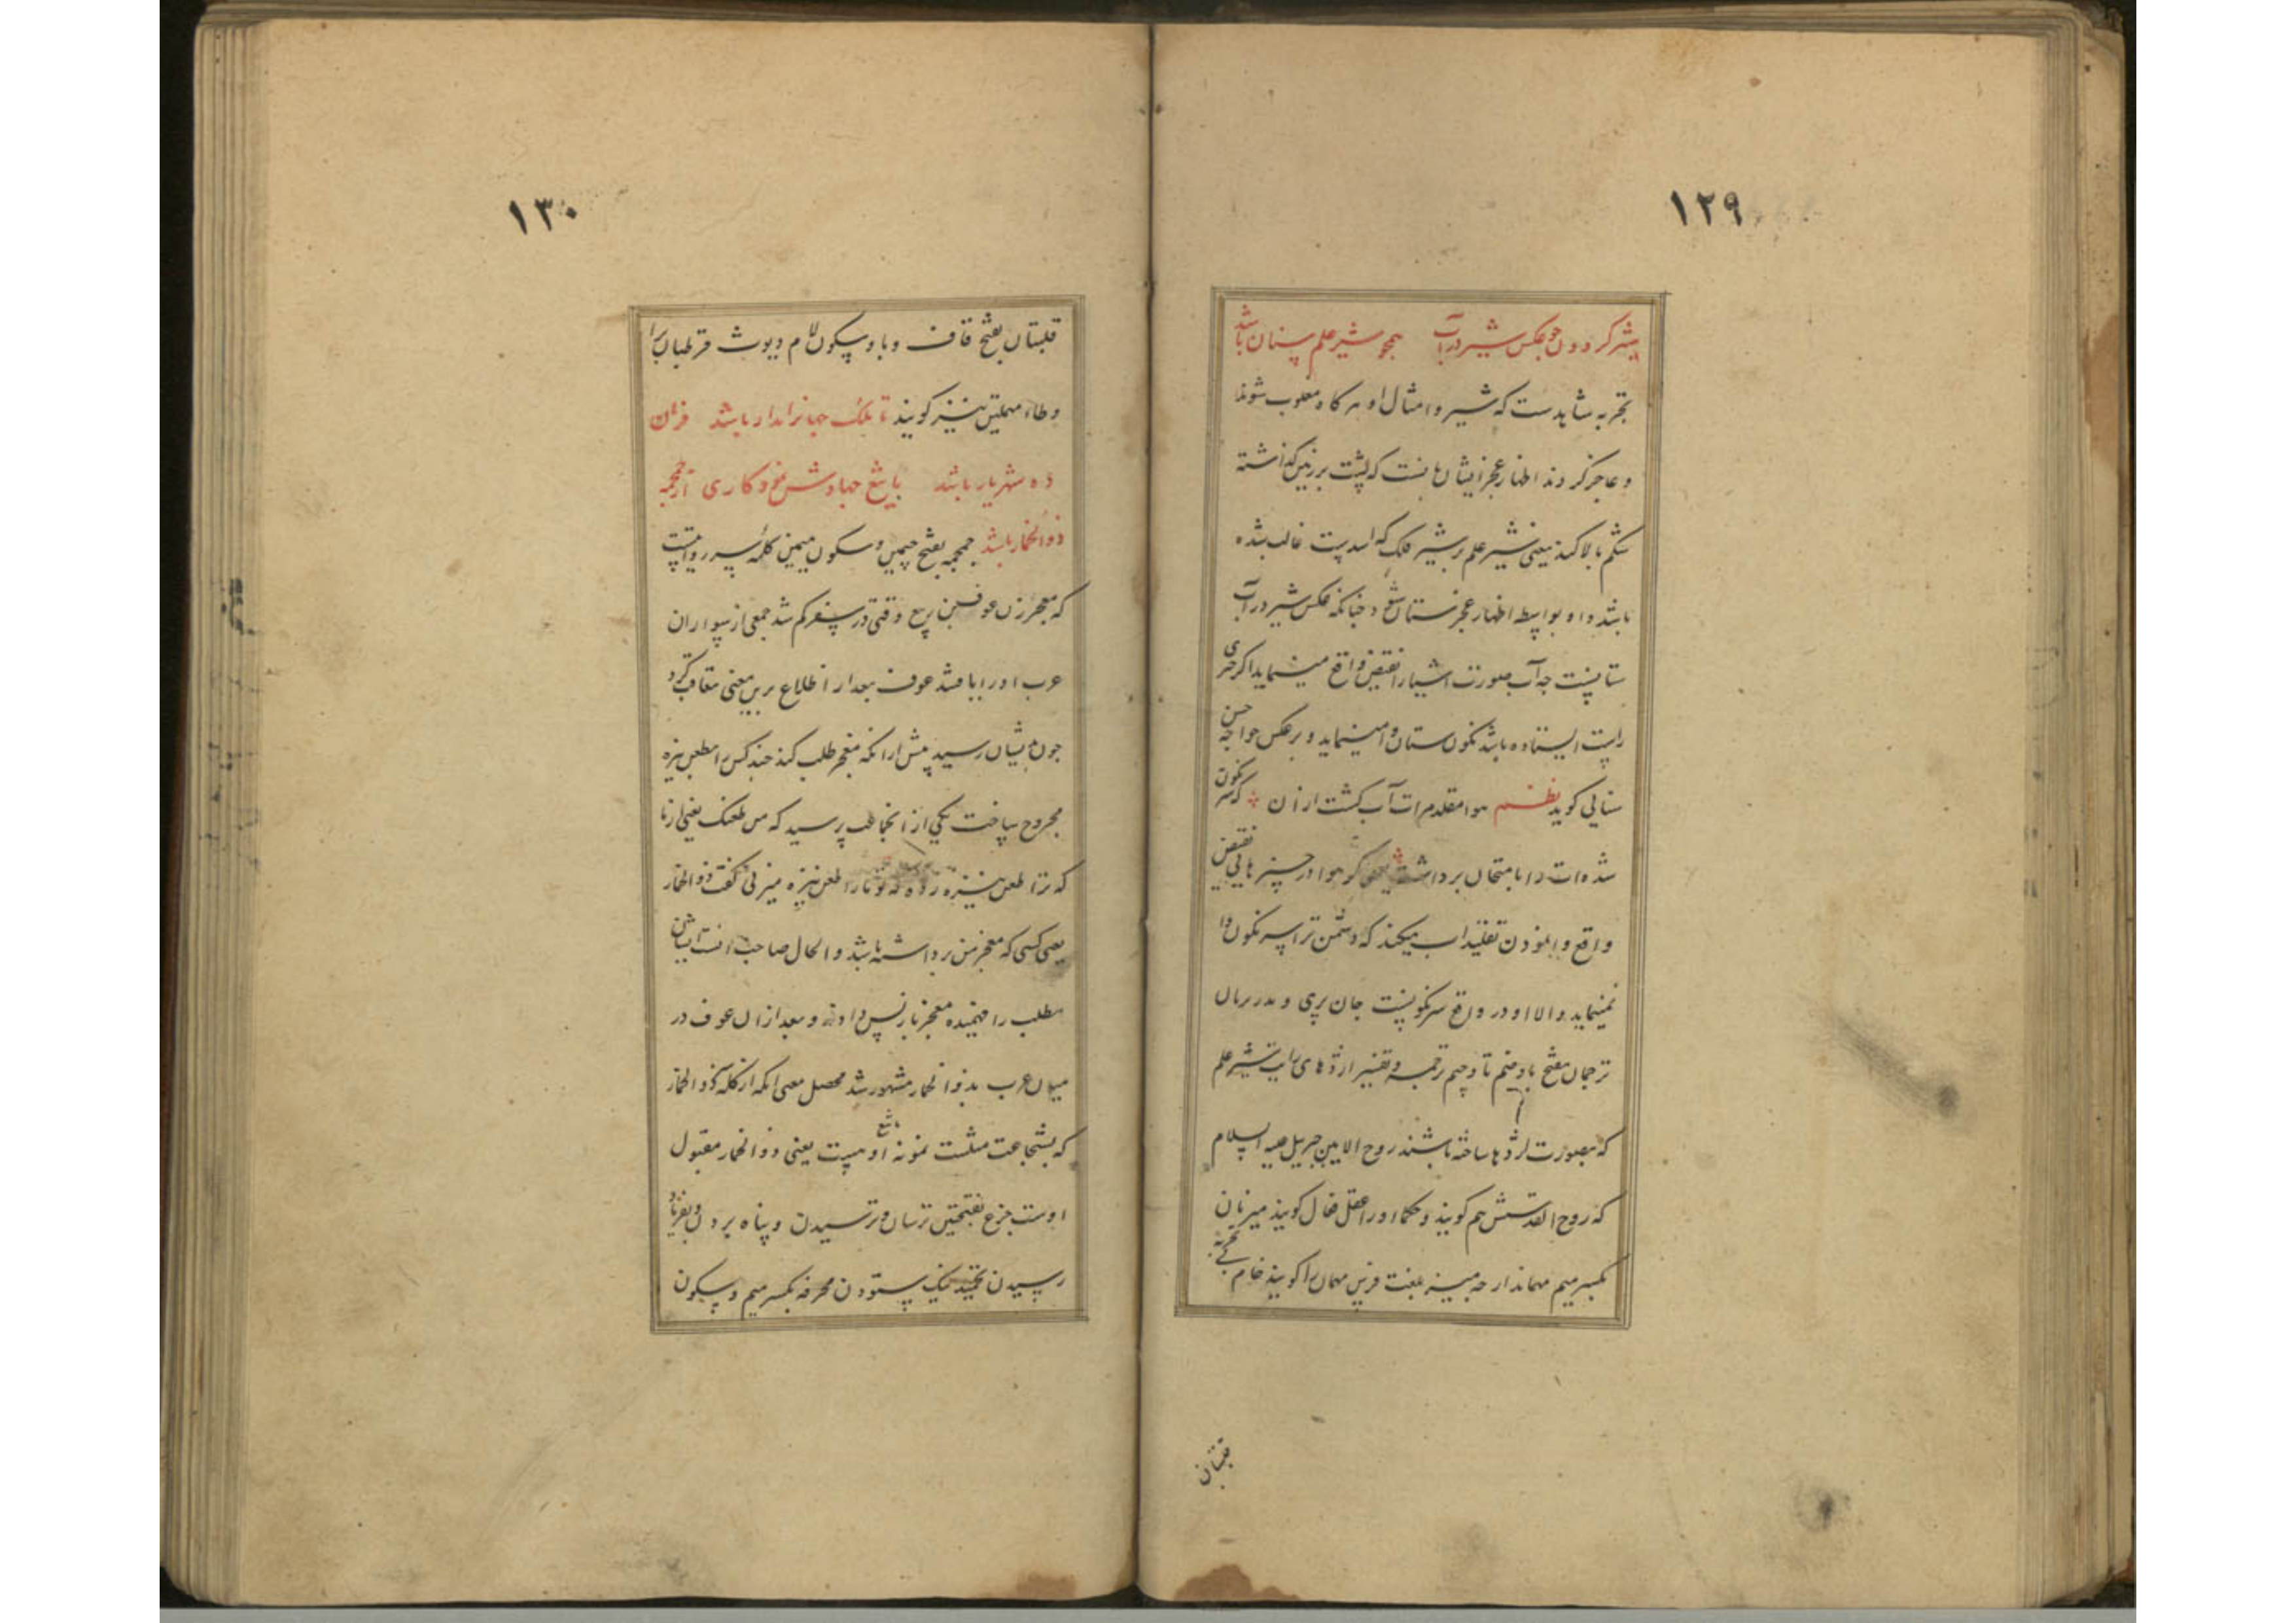 ۱۲۹
شیر کردون چو عکس شیر در آب همچو شیر علم ستان باشد
تجربه شاهدست که شیر و امثال او هرگاه مغلوب شوند
و عاجز کردند اظهار عجز ایشان است که پشت بر زمین گذاشته
شکم بالا کنند یعنی شیر علم بر شیر فلک که اسدست غالب شده
باشد و او بواسطه اظهار عجز ستان شود چنانکه عکس شیر در آب
ستانست چه آب صورت اشیا را نقیض واقع مینماید اگر چیزی
راست ایستاده باشد نکون و ستان وا مینماید و برعکس خواجه حسن
سنایی کوید نظم هوا مقلد مرات آب کشت ازان که سرنکون
شده ات را بامتحان برداشت یعنی که هوا در چیزهایی نقیض
واقع وانمودن تقلید آب میکند که دشمن ترا سرنکون وا
نمینماید والا او در واقع سرنکونست جان پری و
ترجمان بفتح تا و ضم تا و جیم ترجمه و تفسیر اژدهای رایت شیر علم
که بصورت اژدها ساخته باشند روح الامین جبریل علیه السلام
که روح القدسش هم کویند و حکما او را عقل فعال کویند میزبان
بکسر میم مهماندار چه میز بلغت فرس مهمان را کویند خام
قلتبان
۱۳۰
قلتبان بفتح قاف و با و سکون لام دیوث قرطبان برا
و طاء مهملتین نیز کویند تا ملک جهانرا مدار باشد فرمان
ده شهریار باشد با تیغ جهاد نمودکاری آن جمجمه
ذو الخمار باشد جمجمه بفتح جیمین و سکون میمین کلمهٔ سر روایتست
که معجر زن عوف بن ربیع وقتی در سفر کم شد جمعی از سواران
عرب او را یافتند عوف بعد از اطلاع برین معنی تعاقب کرد
چون بایشان رسید پیش ازانکه معجر طلب کند چند کس را بطعن نیزه
مجروح ساخت یکی از انجماعت پرسید که من طعنک یعنی از تو
که ترا طعن نیزه زده که تو ما را طعن نیزه میزنی گفت ذو الخمار
یعنی کسی که معجر من برداشته باشد و الحال صاحب انست ایشان
مطلب را فهمیده معجر باز پس دادند و بعد ازان عوف در
میان عرب بذو الخمار مشهور شد محصل معنی انکه از کله ذو الخمار
که بشجاعت مثلست نمونه تیغ اوست یعنی ذو الخمار مقتول
اوست جزع بفتحتین ترسان و ترسیدن و پناه بردن و بفریاد
رسیدن تحمید نیک ستودن محرفه بکسر میم و سکون